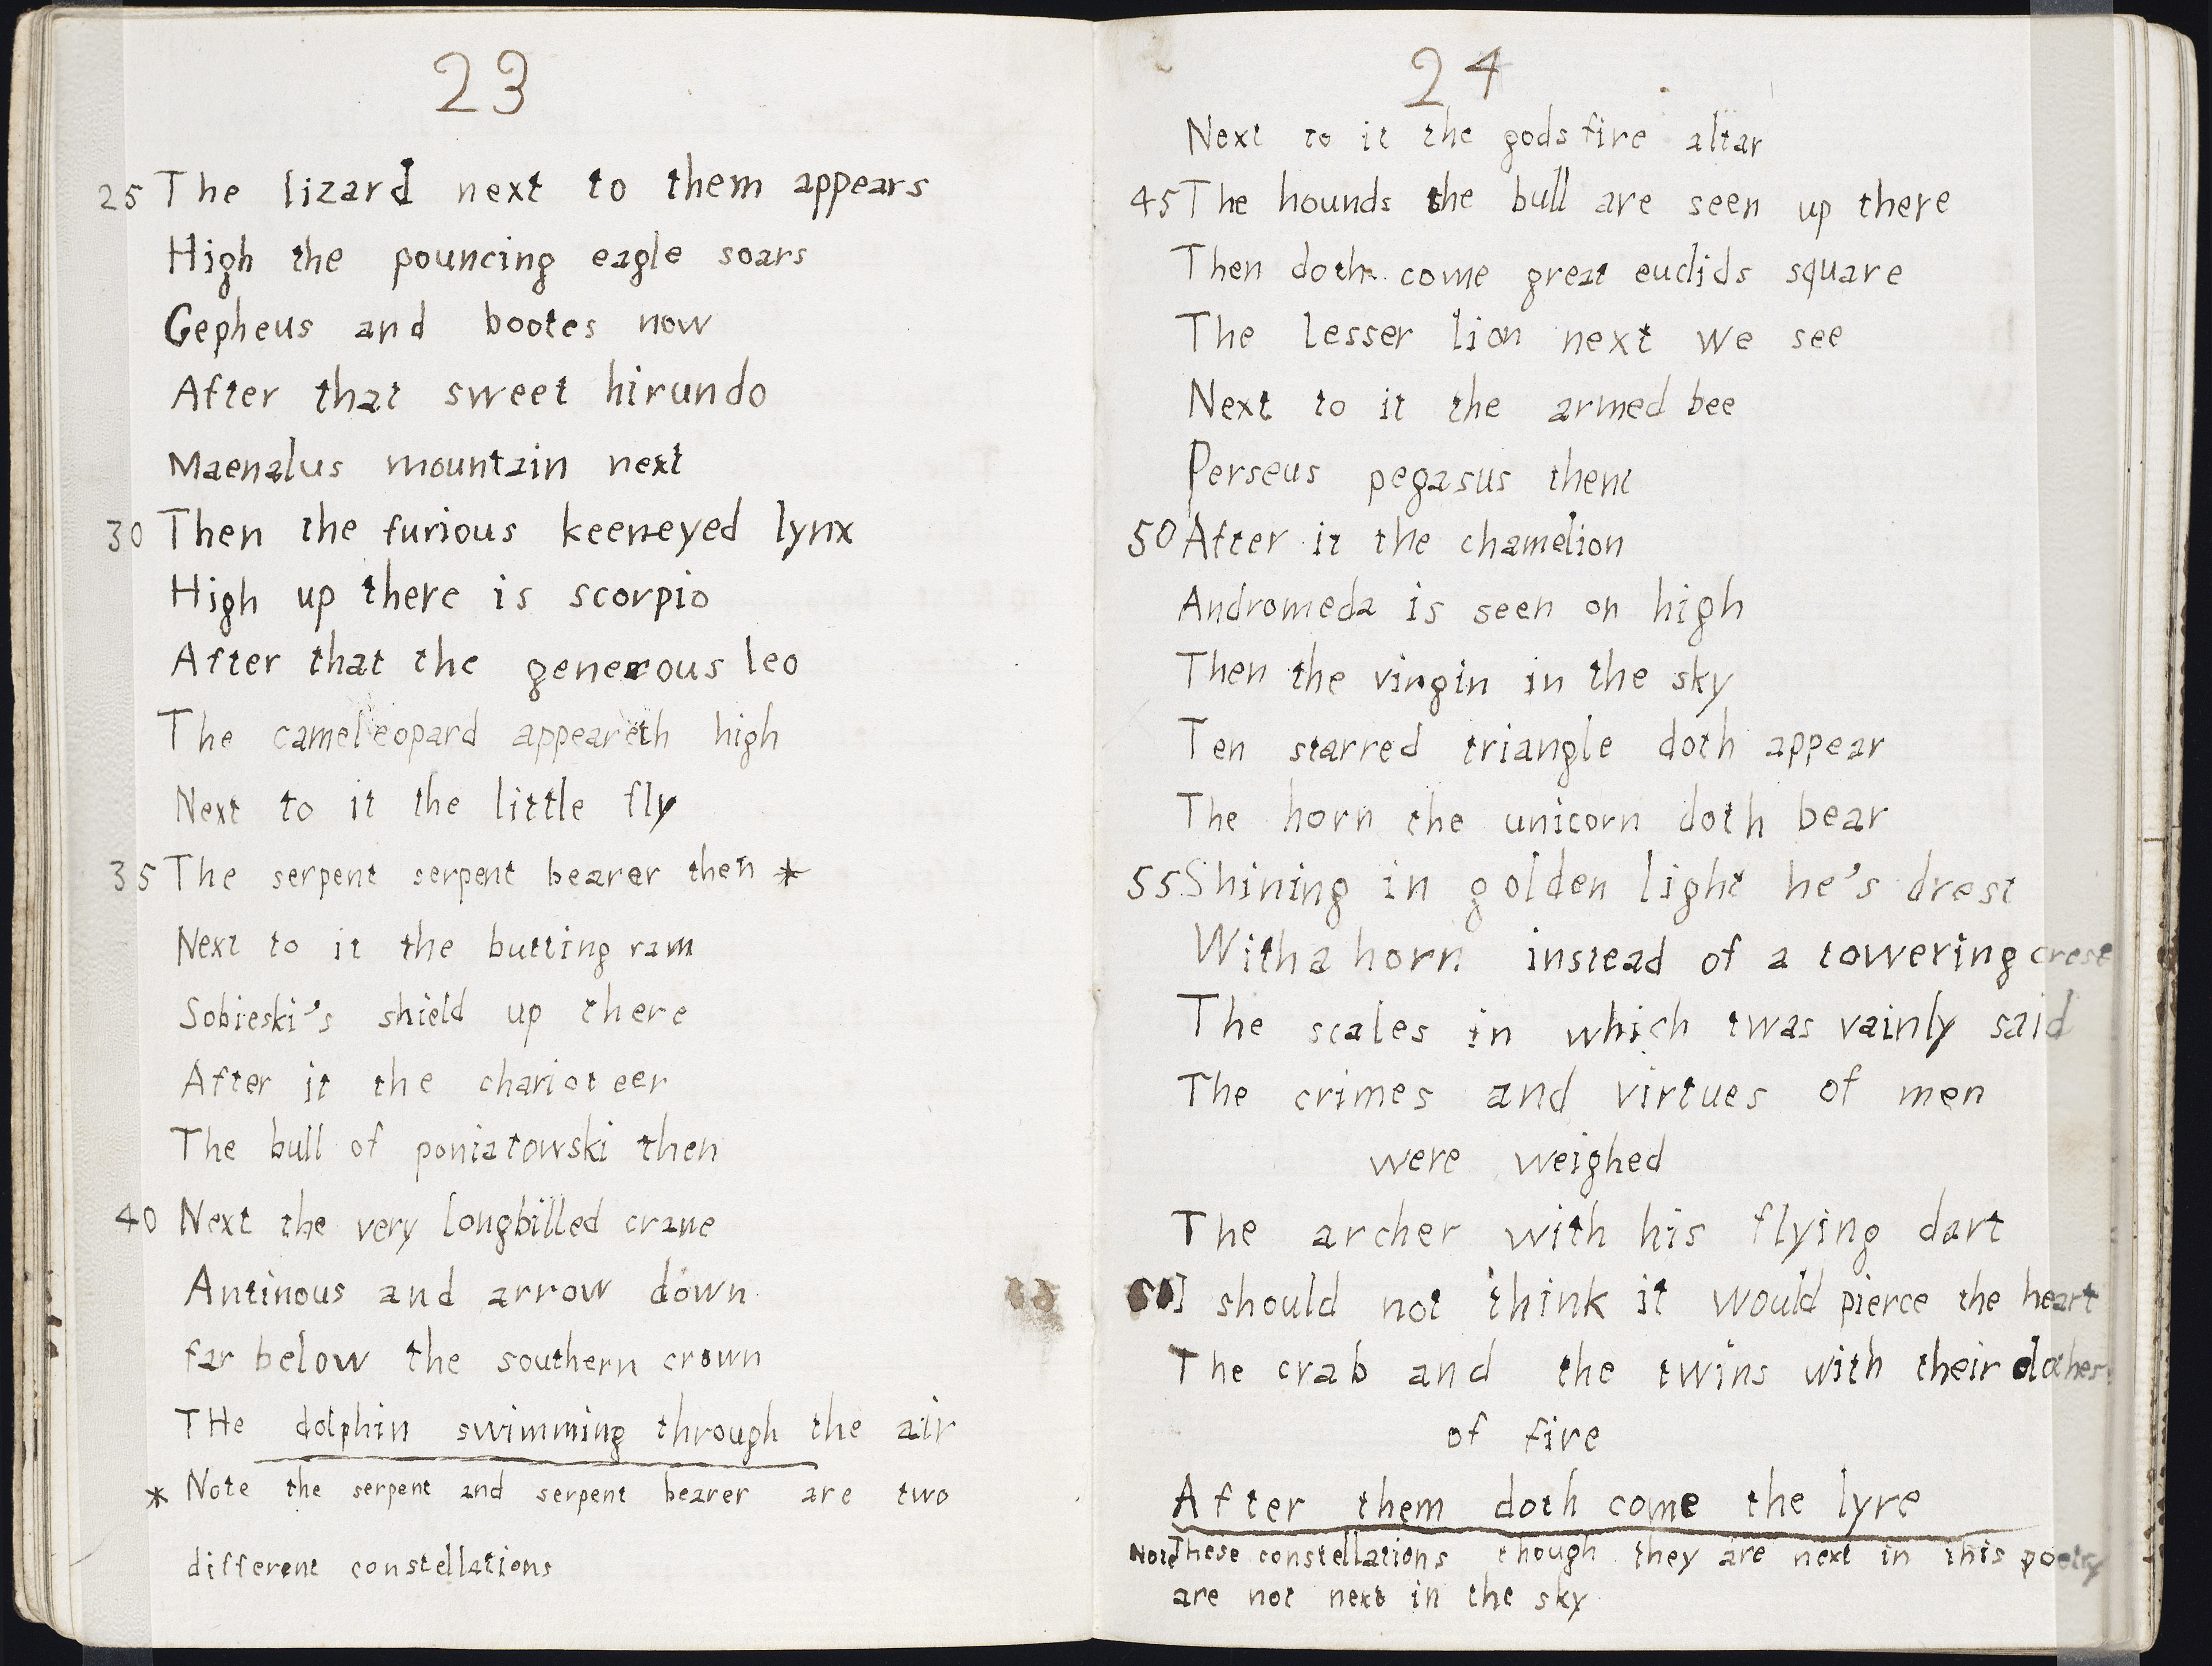 23
25 The lizard next to them appears
High the pouncing eagle soars
Cepheus and bootes now
After that sweet hirundo
Maenalus mountain next
30 Then the furious keeneyed lynx
High up there is scorpio
After that the generous leo
The cameleopard appeareth high
Next to it the little fly
35 The serpent serpent bearer then *
Next to it the butting ram
Sobieski's shield up there
After it the charioteer
The bull of poniatowski then
40 Next the very longbilled crane
Antinous and arrow down
far below the southern crown
THe dolphin swimming through the air
* Note the serpent and serpent bearer are two
different constellations
24
Next to it the gods fire altar
45 The hounds the bull are seen up there
Then doth come great euclids square
The lesser lion next we see
Next to it the armed bee
Perseus pegasus then
50 After it the chamelion
Andromeda is seen on high
Then the virgin in the sky
Ten starred triangle doth appear
The horn the unicorn doth bear
55 Shining in golden light he's drest
With a horn instead of a towering crest
The scales in which twas vainly said
The crimes and virtues of men
were weighed
The archer with his flying dart
I should not think it would pierce the heart
The crab and the twins with their clothes
of fire
After them doth come the lyre
Note These constellations though they are next in this poetry
are not next in the sky